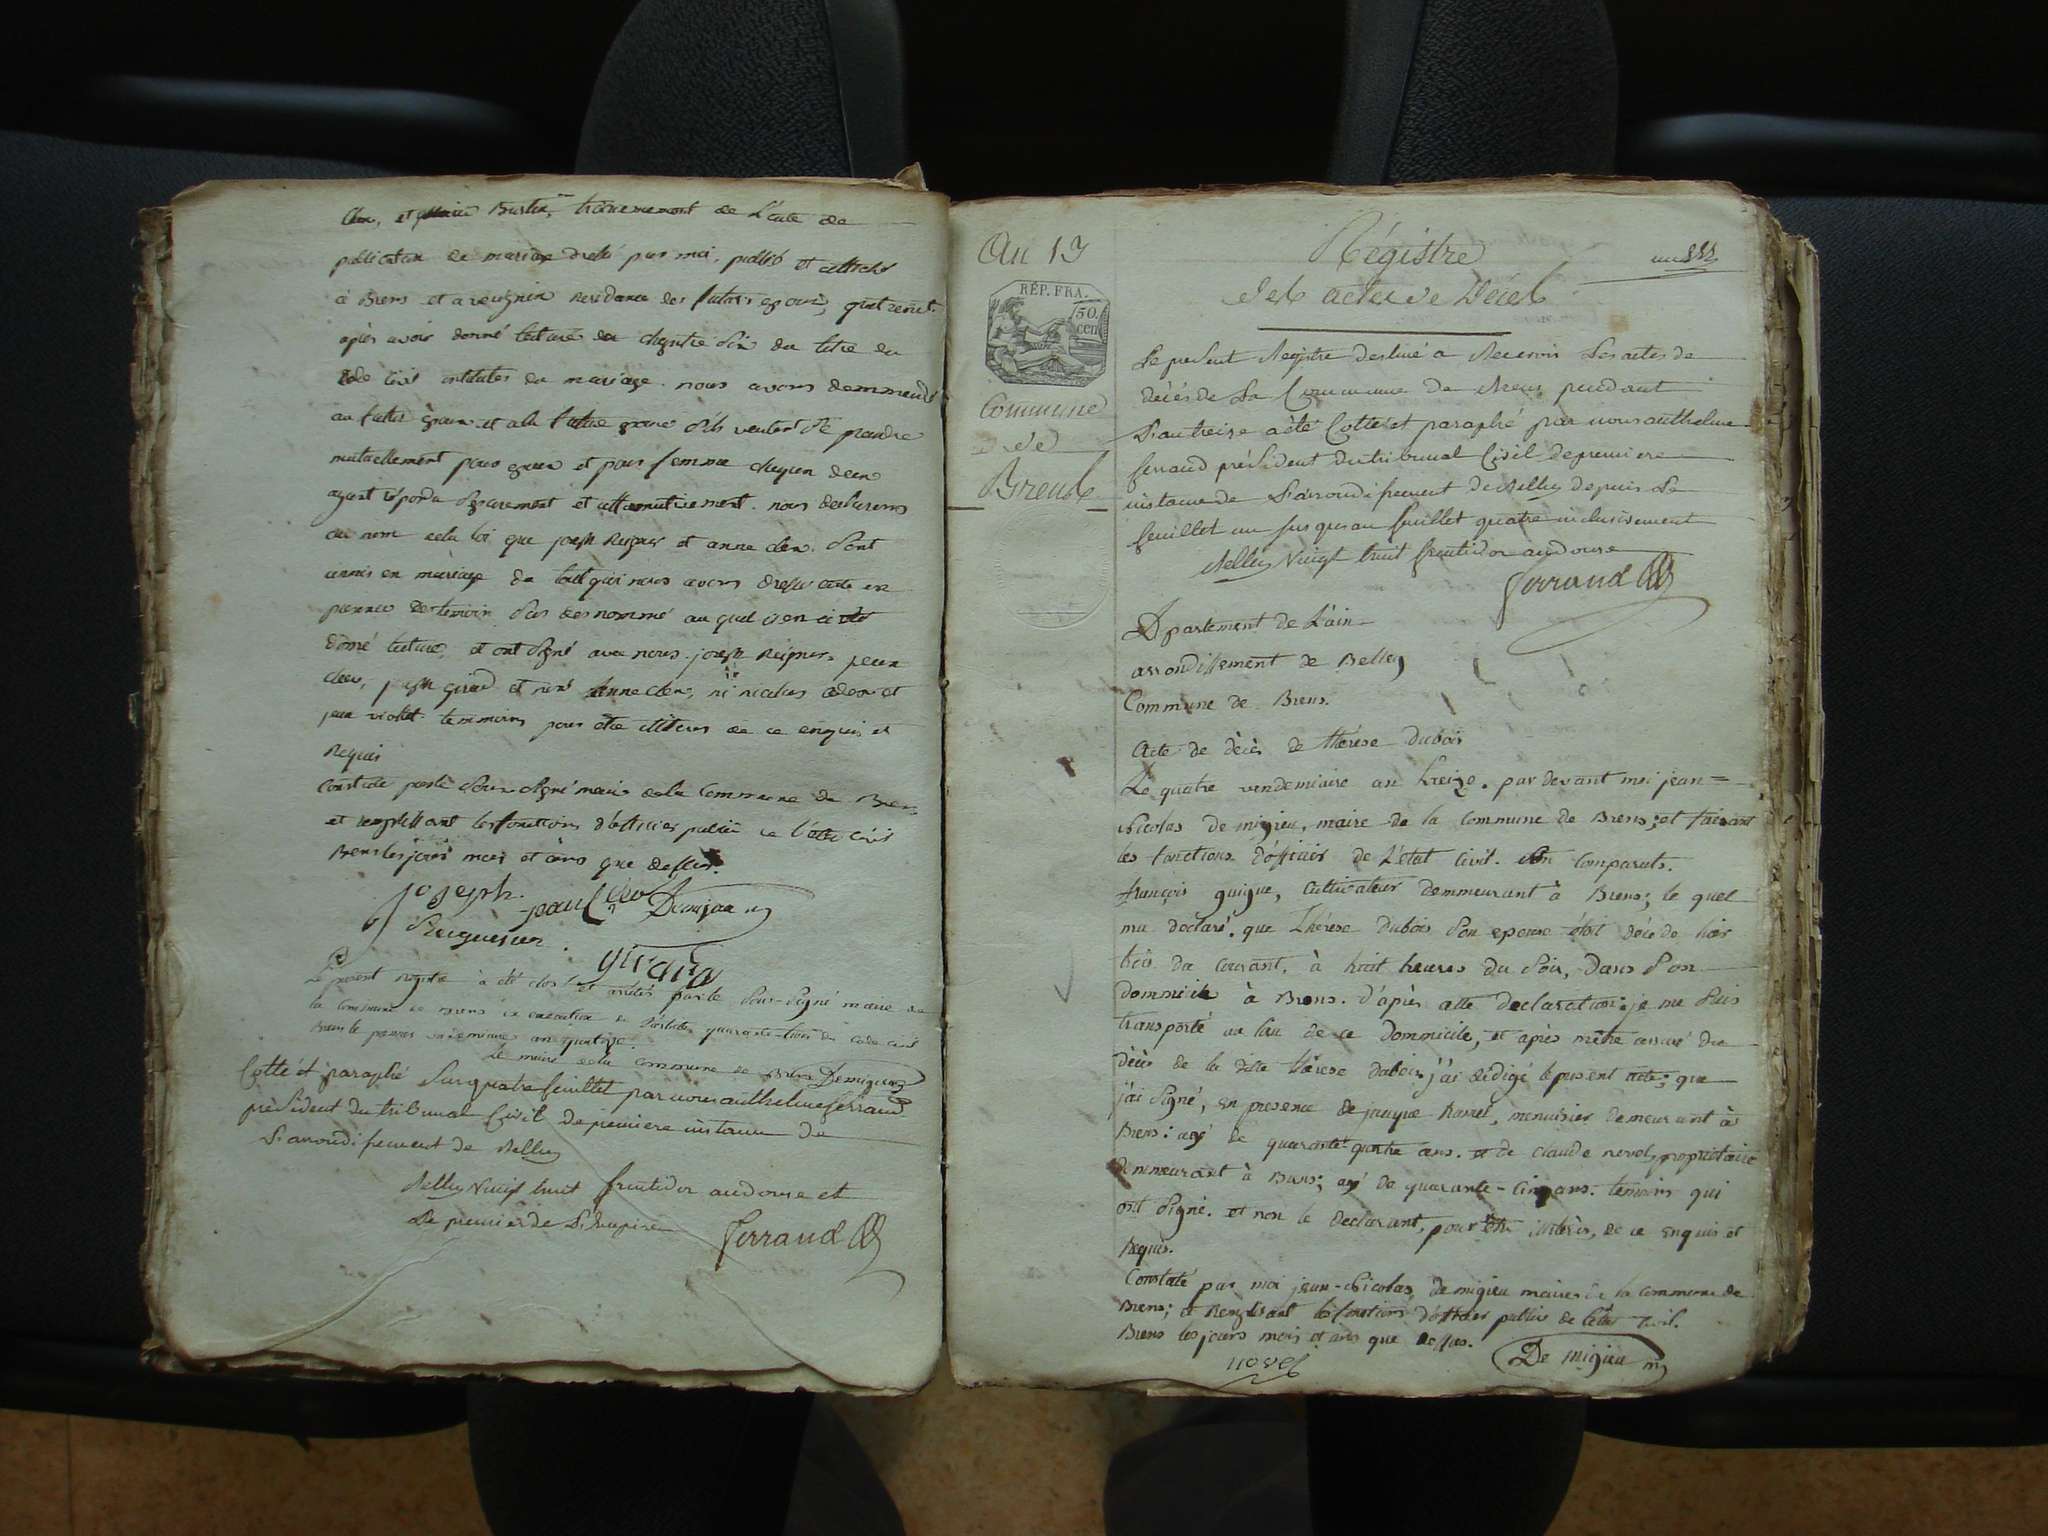 publication de mariage dressé par moi, publié et affiché
à Brens et a residance des futurs epoux,
après avoir donné lecture du chapitre six du titre du
Code Civil du mariage. nous avons demmendé
au futur epoux et a la future epouse s'ils veulent se prendre
mutuellement pour epoux et pour femme chaqun deux
ayant répondu separement et affirmativement. nous declarons
au nom dela loi que joseph et anne cler. sont
unnis en mariage de tout quoi nous avons dressé acte en
donné lecture, et ont signé avec nous. joseph
joseph girod et non anne cler, ni nicolas et
temmoins pour etre illiteres de ce enquis et
Requis
Constaté par le sous signé maire dela Commune de Brens
et remplissant les fonctions d'officier public de l'etat civil
Brens les jours mois et ans que dessus.
joseph
girard
Le present registre à été clos et arrété par le sous-signé maire de
la commune de Brens en execution de l'article quarante-trois du code civil
Brens le premier vendemiaire an quatorze.
Le maire dela commune de Brens Demigieu
Cotté et paraphé sur quatre feuillet par nous anthelme ferrand
président du tribunal Civil de premiere instance de
l'arrondissement de Belley
Belley vingt huit fructidor an douze et
Le premier de l'Empire
Ferrand
An 13
Régistre
des actes de Décès
RÉP. FRA.
50.
cen
Commune
de
Brens
Le present Registre destiné a Recevoir Les actes de
décès de La Commune de Brens pendant
L'an treize a été Cotté et paraphé par nous anthelme
ferrand président du tribunal Civil de premiere
instance de L'arrondissement de Belley depuis Le
feuillet un jusques au feuillet quatre inclusivement
Belley Vingt huit fructidor an douze
Ferrand
Département de L'ain
arrondissement de Belley
Commune de Brens.
Acte de décès de thérése dubois
Le quatre vendemiaire an treize. par devant moi jean=
Nicolas de migieu, maire de la commune de Brens; et faisant
les fonctions d'officier de L'état Civil. est comparuts.
françois guigue, Cultivateur demmeurant à Brens; le quel
ma declaré. que Thérése dubois son epouse étoit décédé hier
trois du courant, à huit heures du soir, dans son
dommicile à Brens. d'après cette declaration; je me suis
transporté au lieu de ce dommicile, et après mêtre assuré du
décès de la dite thérese dubois j'ai rédigé le present acte; que
j'ai signé, en presence de jacque, menuisier demeurant à
Brens: agé de quarante-quatre ans. et de claude novel, propriétaire
demmeurant à Brens; agé de quarante-cinq ans. temoins qui
ont signé. et non le declarant, pour être illitéré, de ce enquis et
Requis.
Constaté par moi jean-Nicolas, de migieu maire de la commune de
Brens; et Remplissant les fonctions d'officier public de l'état Civil.
Brens les jours mois et ans que dessus.
novel
De migieu